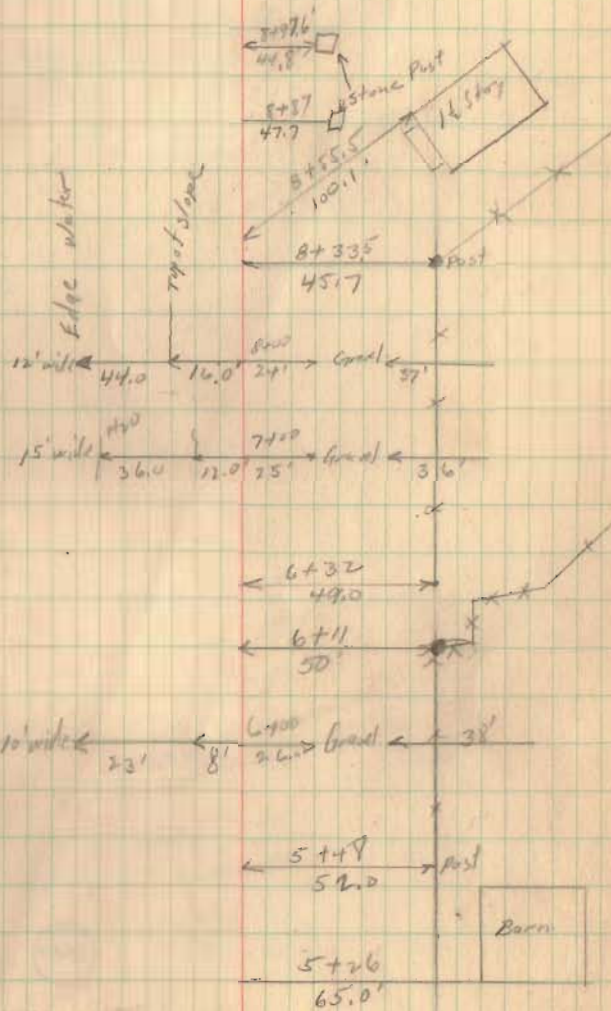 8+97.6'
44.8'
Stone Post
8+87
47.7
1½ Story
8+55.5
100.1'
Edge water
Top of Slope
8+33.5
45.7
Post
12' wide 44.0 16.0' 8+00 24' Gravel 37'
15' wide 36.0 12.0' 7+00 25' Gravel 36'
6+32
49.0
6+11
50'
10' wide 23' 8' 6+00 26.0 Gravel 38'
5+48 Post
52.0
Barn
5+26
65.0'